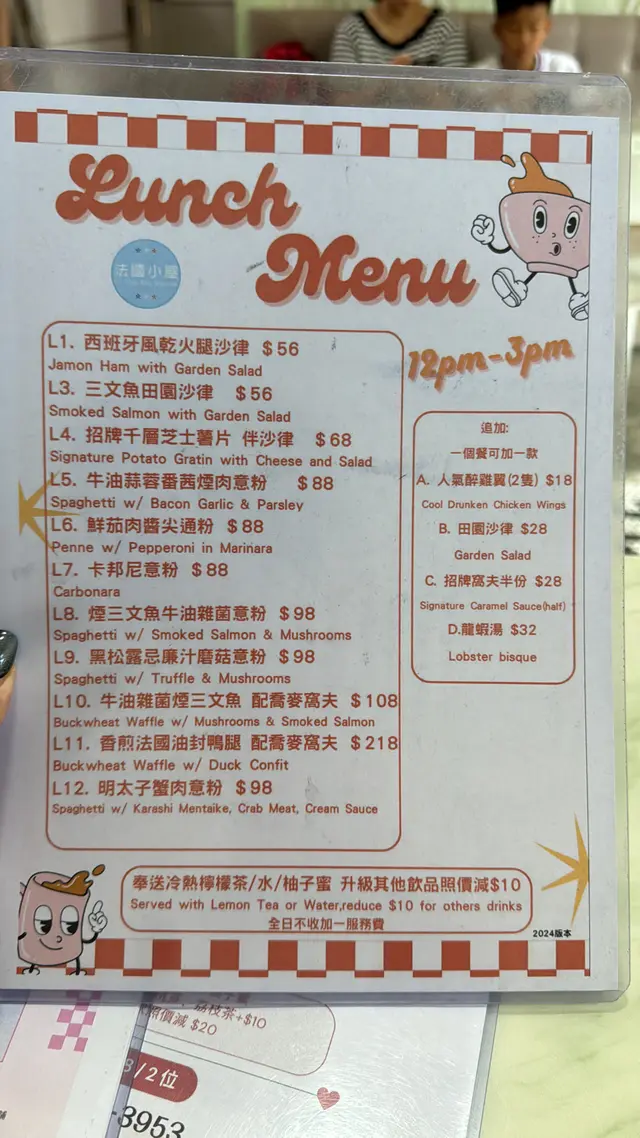 Lunch
Menu
法國小屋
12pm-3pm
L1. 西班牙風乾火腿沙律 $56
Jamon Ham with Garden Salad
L3. 三文魚田園沙律 $56
Smoked Salmon with Garden Salad
L4. 招牌千層芝士薯片 伴沙律 $68
Signature Potato Gratin with Cheese and Salad
L5. 牛油蒜蓉番茜煙肉意粉 $88
Spaghetti w/ Bacon Garlic & Parsley
L6. 鮮茄肉醬尖通粉 $88
Penne w/ Pepperoni in Marinara
L7. 卡邦尼意粉 $88
Carbonara
L8. 煙三文魚牛油雜菌意粉 $98
Spaghetti w/ Smoked Salmon & Mushrooms
L9. 黑松露忌廉汁磨菇意粉 $98
Spaghetti w/ Truffle & Mushrooms
L10. 牛油雜菌煙三文魚 配喬麥窩夫 $108
Buckwheat Waffle w/ Mushrooms & Smoked Salmon
L11. 香煎法國油封鴨腿 配喬麥窩夫 $218
Buckwheat Waffle w/ Duck Confit
L12. 明太子蟹肉意粉 $98
Spaghetti w/ Karashi Mentaike, Crab Meat, Cream Sauce
追加:
一個餐可加一款
A. 人氣醉雞翼(2隻) $18
Cool Drunken Chicken Wings
B. 田園沙律 $28
Garden Salad
C. 招牌窩夫半份 $28
Signature Caramel Sauce(half)
D.龍蝦湯 $32
Lobster bisque
奉送冷熱檸檬茶/水/柚子蜜 升級其他飲品照價減$10
Served with Lemon Tea or Water,reduce $10 for others drinks
全日不收加一服務費
2024版本
荔枝茶+$10
照價減 $20
/2位
-3953